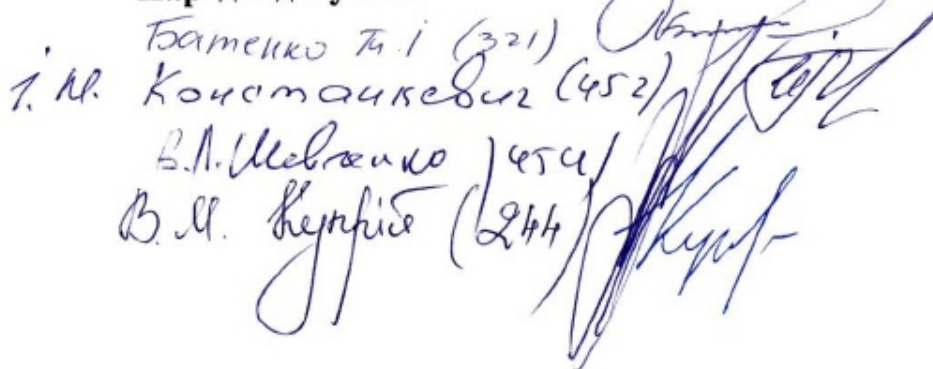 Батенко Т.І (321)
І. М. Констанкевич (452)
В.Л. Шевченко (454)
В. М. Купрій (244)